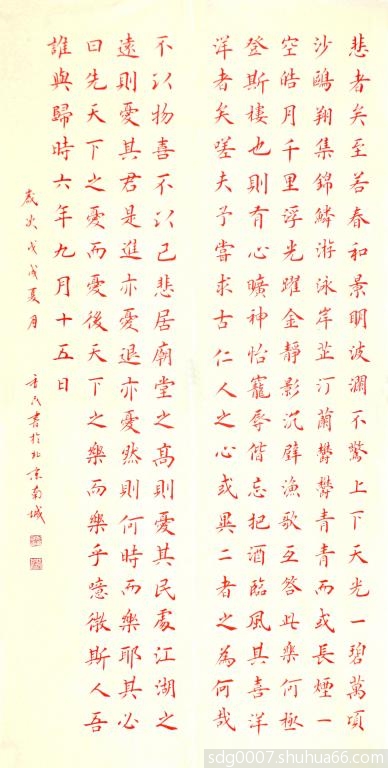 悲者矣至若春和景明波瀾不驚上下天光一碧萬頃
沙鷗翔集錦鱗游泳岸芷汀蘭鬱鬱青青而或長煙一
空皓月千里浮光躍金靜影沉璧漁歌互答此樂何極
登斯樓也則有心曠神怡寵辱偕忘把酒臨風其喜洋
洋者矣嗟夫予嘗求古仁人之心或異二者之為何哉
不以物喜不以己悲居廟堂之高則憂其民處江湖之
遠則憂其君是進亦憂退亦憂然則何時而樂耶其必
曰先天下之憂而憂後天下之樂而樂乎噫微斯人吾
誰與歸時六年九月十五日
歲次戊戌夏月 民書於北京南城
sdg0007.shuhua66.com